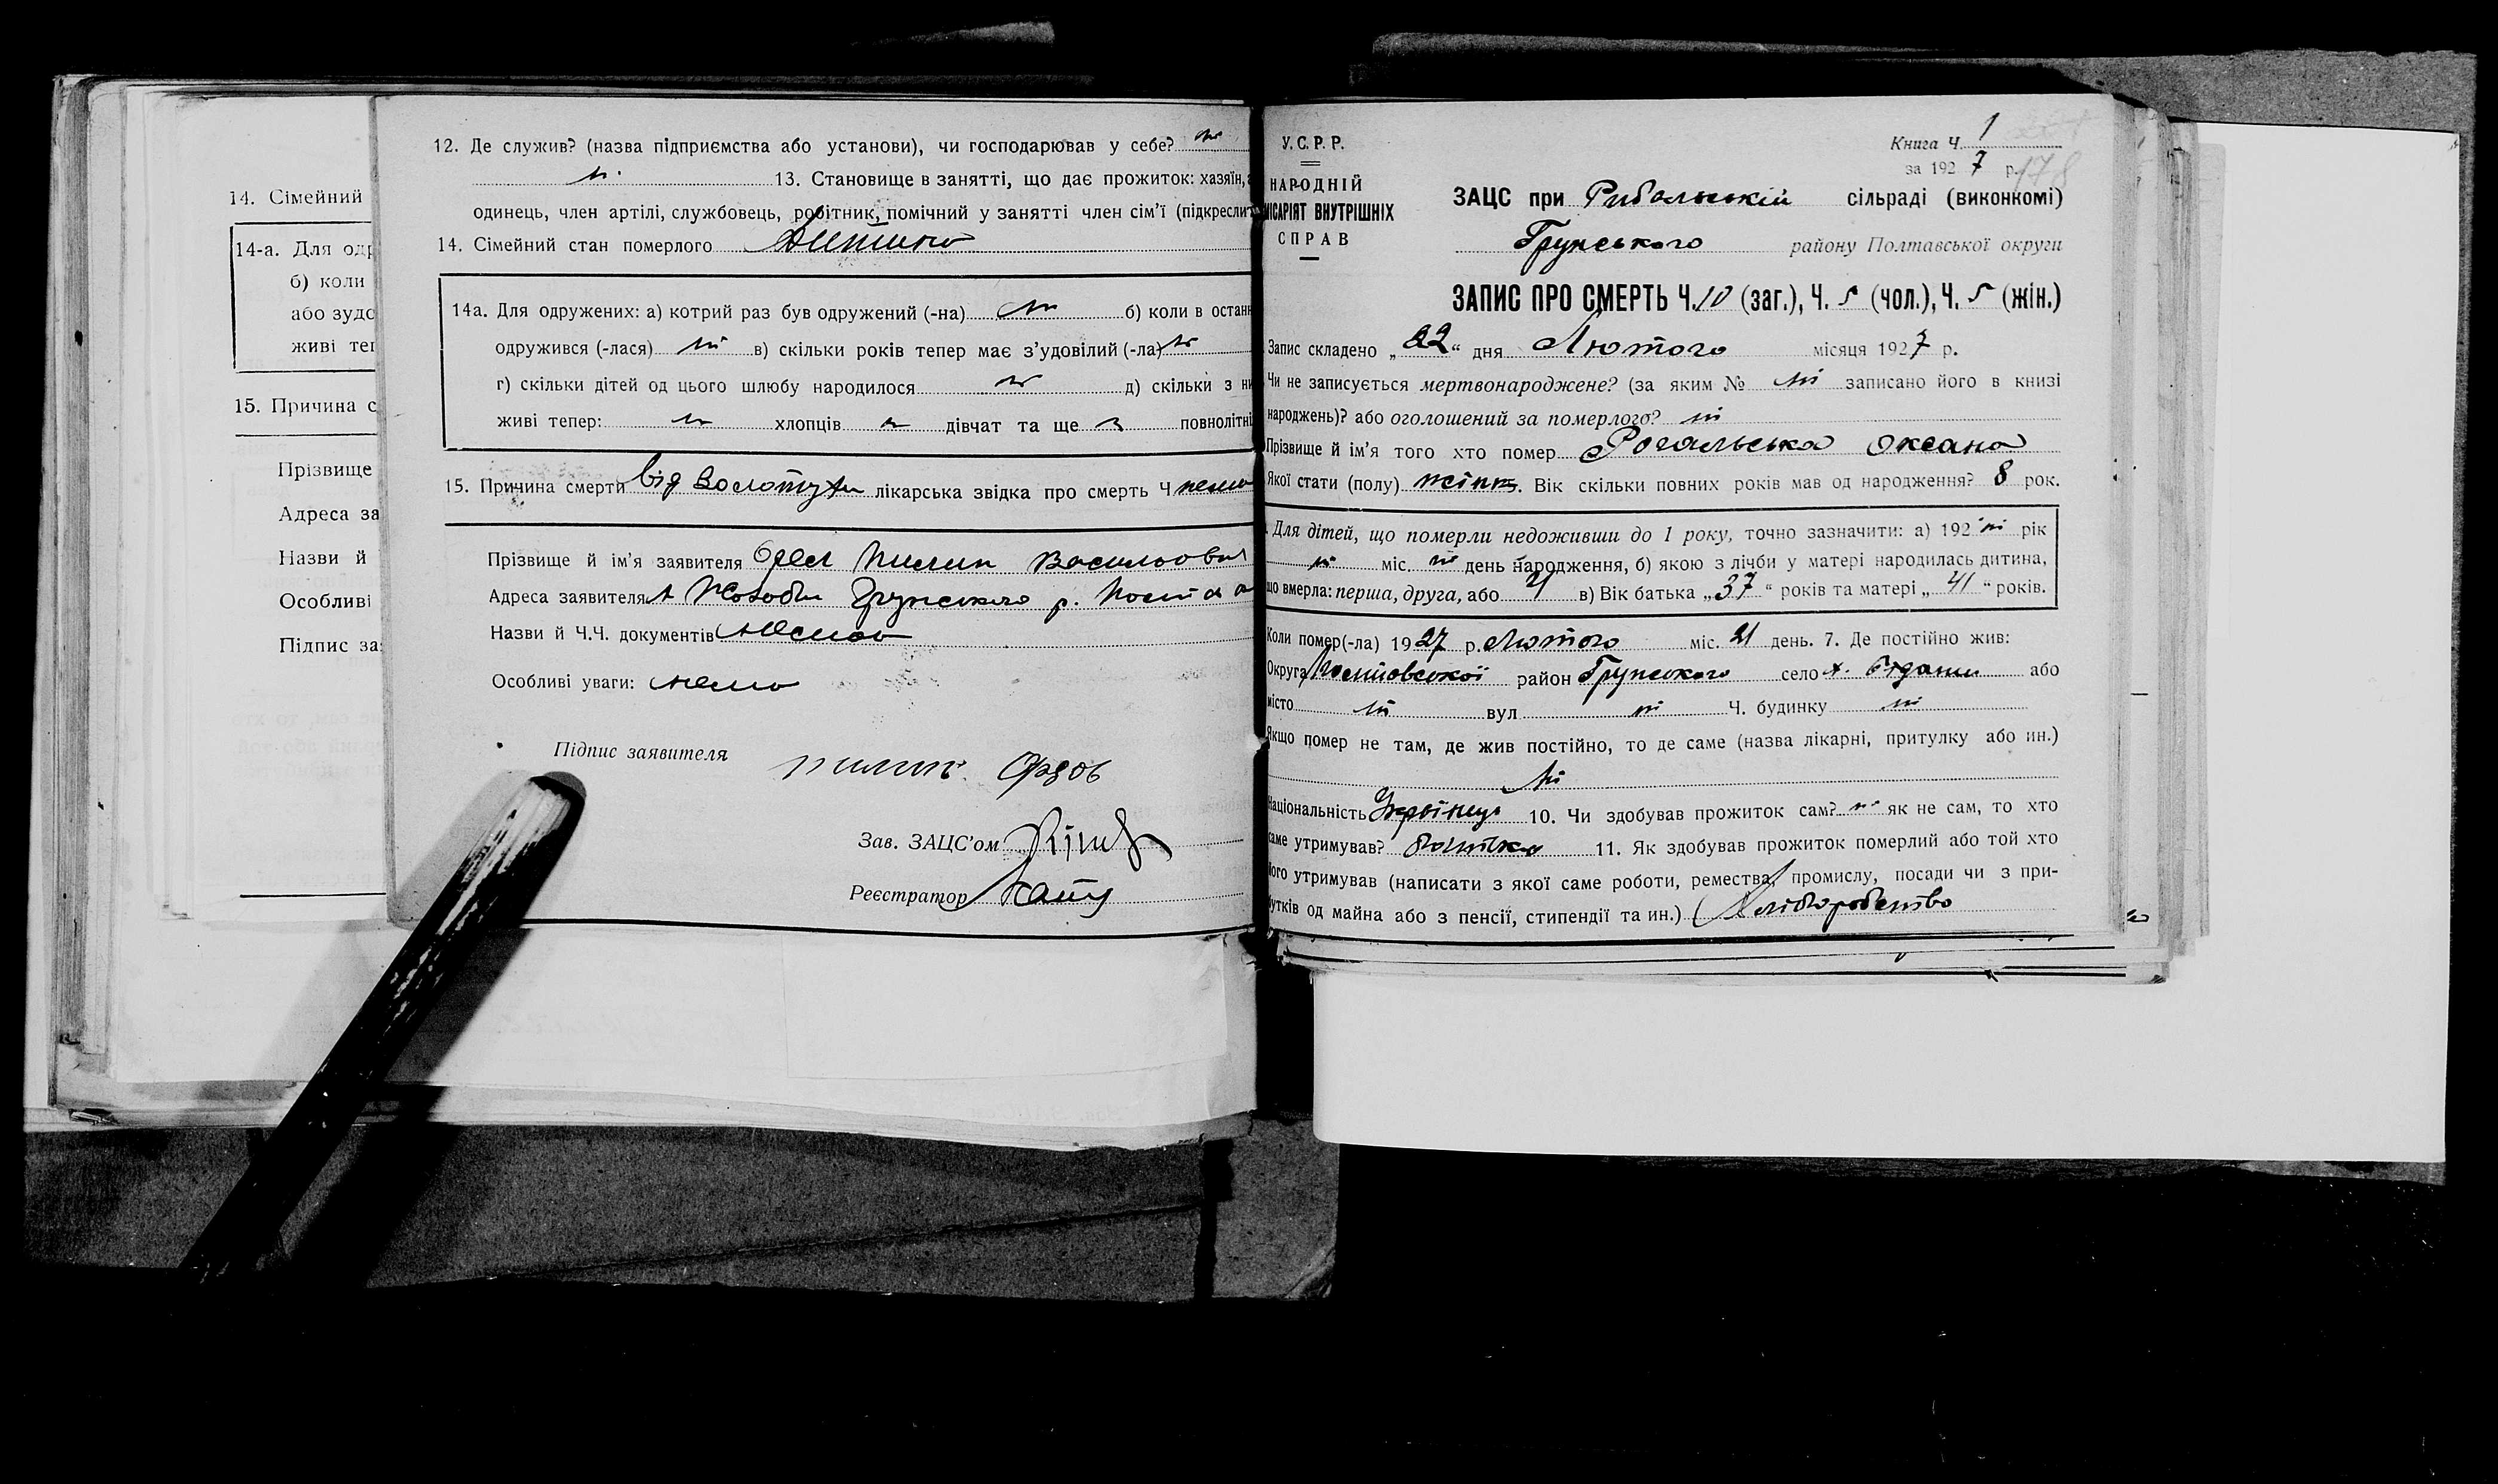 14. Сімейний
14-а. Для одр
б) коли
або зудо
живі теп
15. Причина с
Прізвище
Адреса за
Назви й
Особливі
Підпис за
12. Де служив? (назва підприємства або установи), чи господарював у себе?
13. Становище в занятті, що дає прожиток: хазяїн,
одинець, член артілі, службовець, робітник, помічний у занятті член сім’ї (підкреслит
14. Сімейний стан померлого Дитина
14а. Для одружених: а) котрий раз був одружений (-на) б) коли в останн
одружився (-лася) ні в) скільки років тепер має з’удовілий (-ла)
г) скільки дітей од цього шлюбу народилося д) скільки з ни
живі тепер: хлопців дівчат та ще повнолітні
15. Причина смерти від Золотухи лікарська звідка про смерть Ч нема
Прізвище й ім’я заявителя Пилип Васильович
Адреса заявителя Грунського р.
Назви й Ч.Ч. документів нема
Особливі уваги: нема
Підпис заявителя Пилип
Зав. ЗАЦС’ом
Реєстратор
У.С.Р.Р.
НАРОДНІЙ
МІСАРІЯТ ВНУТРІШНІХ
СПРАВ
Книга Ч. 1
за 192 7 р. 178
ЗАЦС при Рибальській сільраді (виконкомі)
Грунського району Полтавської округи
ЗАПИС ПРО СМЕРТЬ Ч. 10 (заг.), Ч. 5 (чол.), Ч. 5 (жін.)
Запис складено „ 22 “ дня Лютого місяця 192 7 р.
Чи не записується мертвонароджене? (за яким № ні записано його в книзі
народжень)? або оголошений за померлого? ні
Прізвище й ім’я того хто помер Рогальська Оксана
Якої стати (полу) жіноч. Вік скільки повних років мав од народження? 8 рок.
Для дітей, що померли недоживши до 1 року, точно зазначити: а) 192 ні рік
ні міс. ні день народження, б) якою з лічби у матері народилась дитина,
що вмерла: перша, друга, або 4 в) Вік батька „ 37 “ років та матері „ 41 “ років.
Коли помер(-ла) 19 27 р. Лютого міс. 21 день. 7. Де постійно жив:
Округа Полтавської район Грунського село х. або
місто ні вул ні Ч. будинку ні
Якщо помер не там, де жив постійно, то де саме (назва лікарні, притулку або ин.)
Ні
Національність Українець 10. Чи здобував прожиток сам? ні як не сам, то хто
саме утримував? батько 11. Як здобував прожиток померлий або той хто
його утримував (написати з якої саме роботи, ремества, промислу, посади чи з при-
бутків од майна або з пенсії, стипендії та ин.) Хліборобство